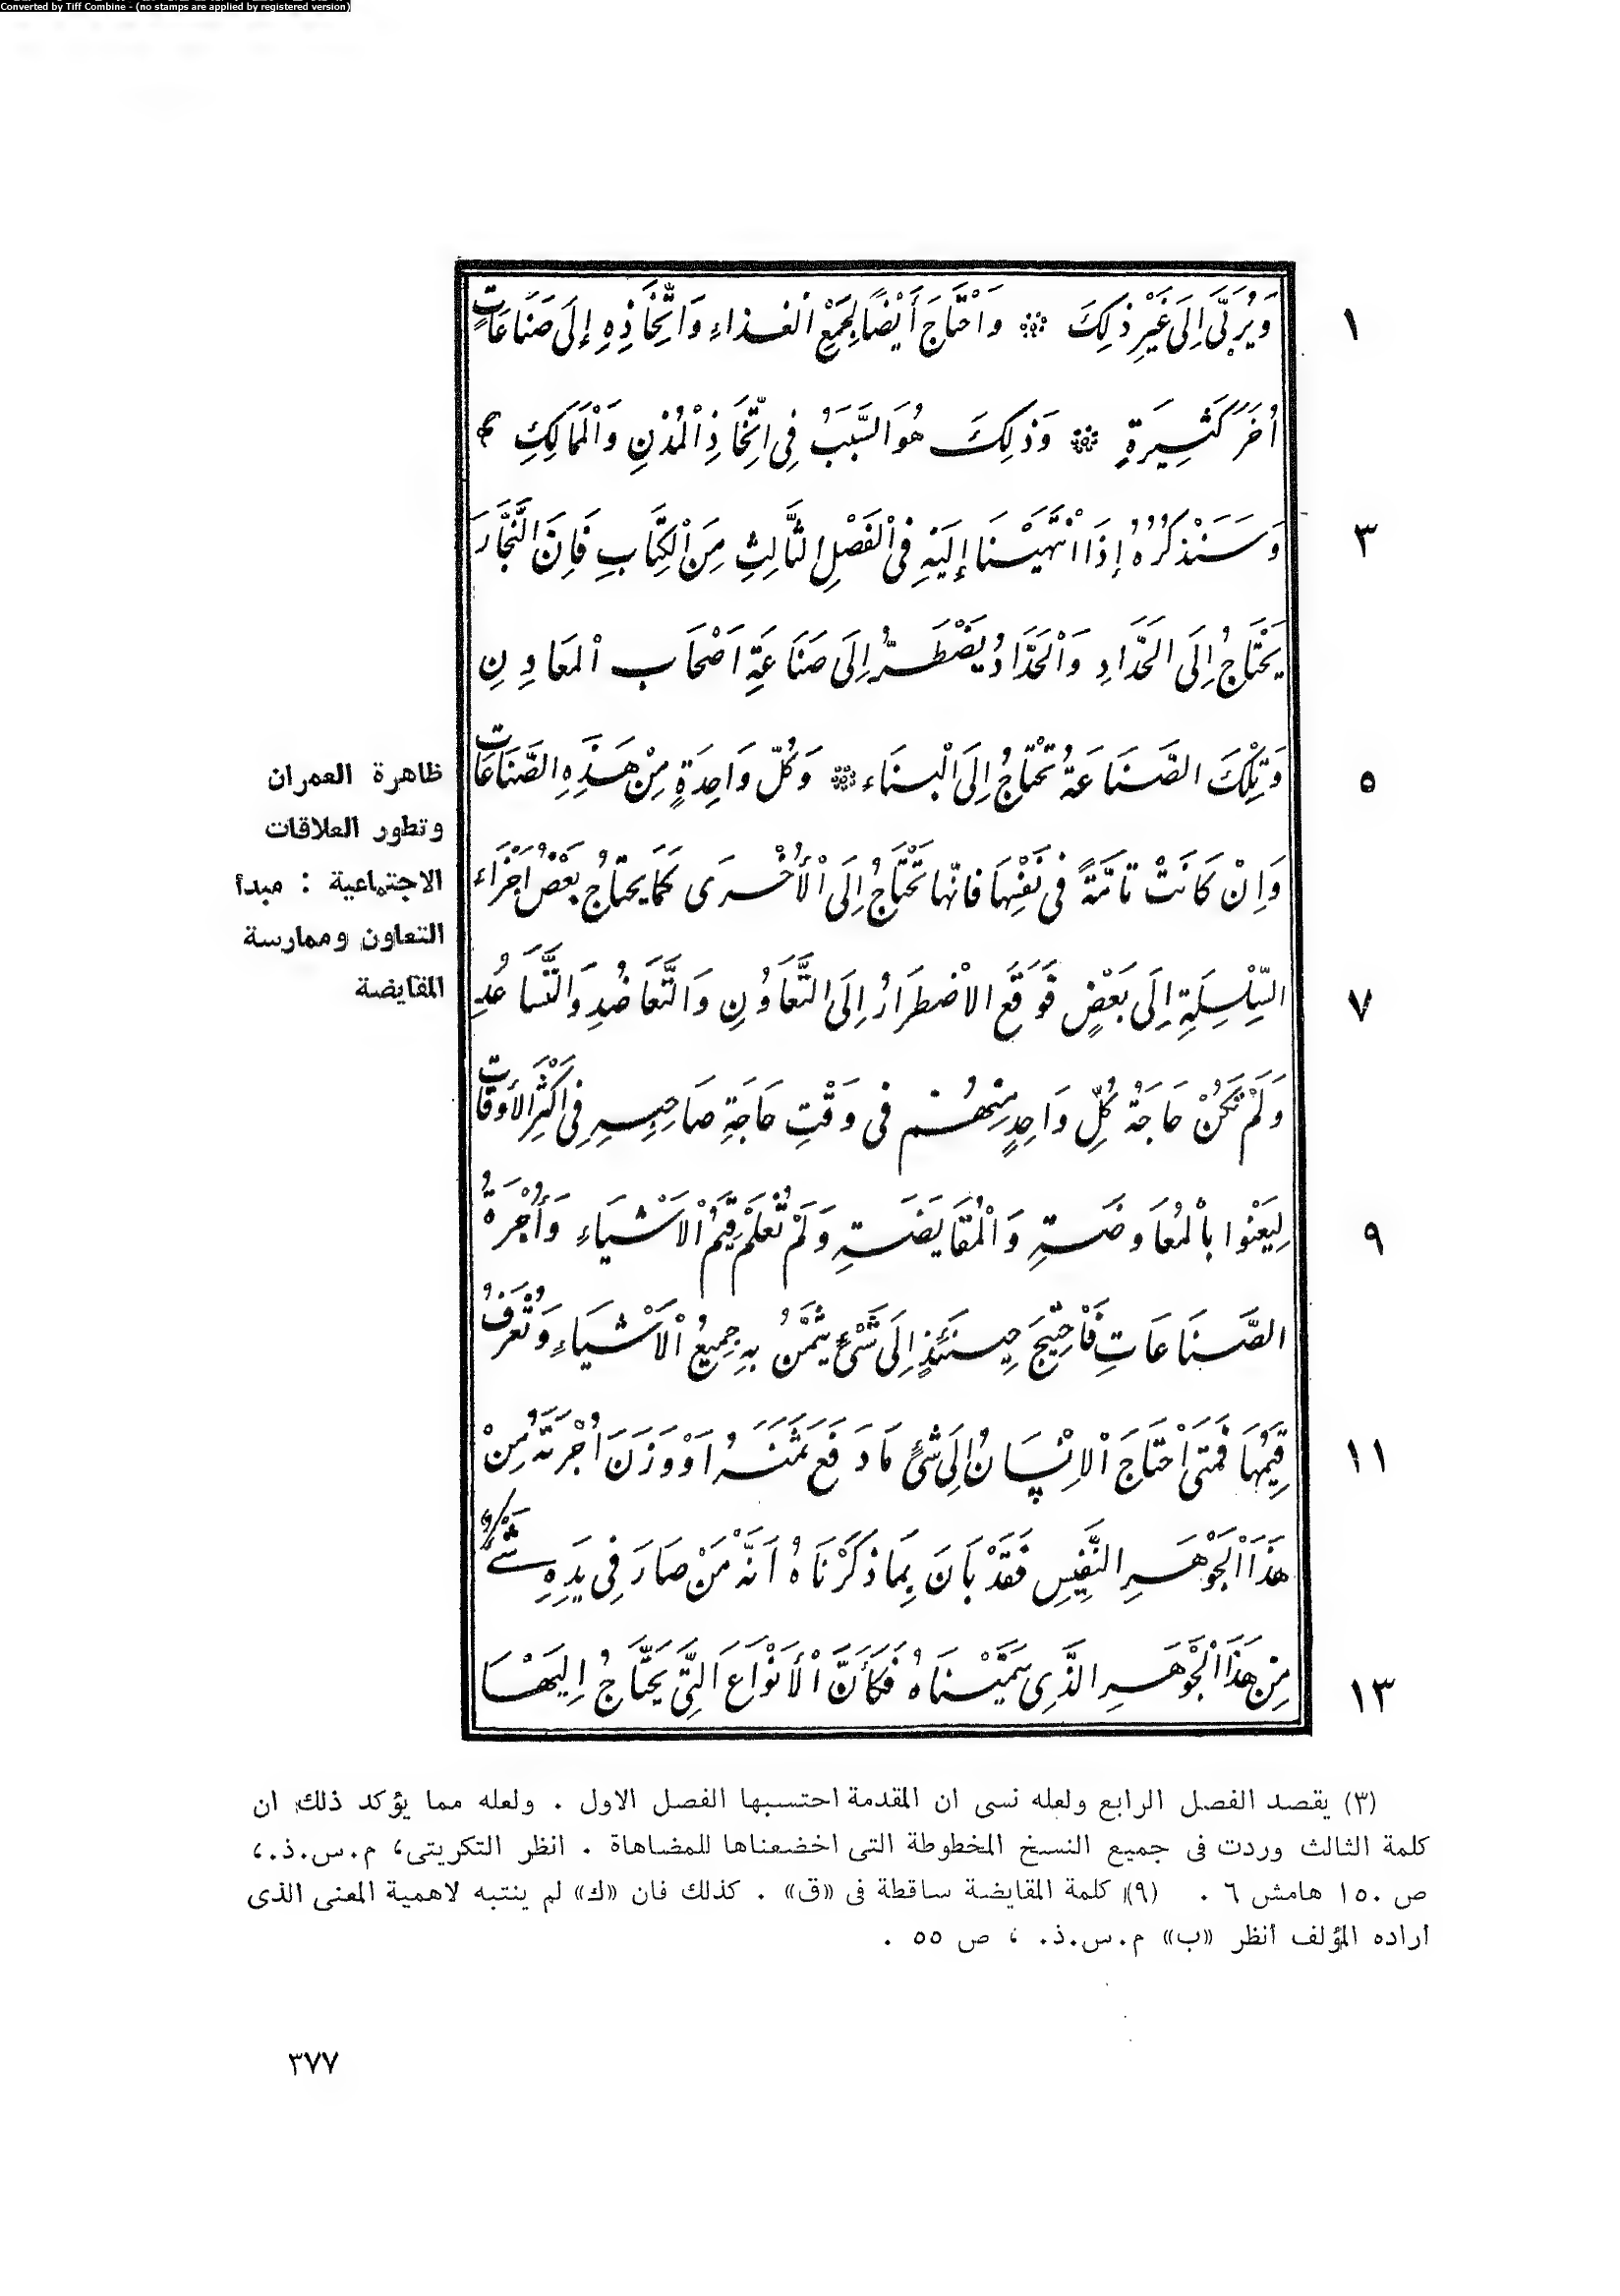 Converted by Tiff Combine - (no stamps are applied by registered version)
١ وَيُرَبَّى إِلَى غَيْرِ ذٰلِكَ ۞ وَاحْتَاجَ أَيْضًا لِجَمْعِ الْغِذَاءِ وَاتِّخَاذِهِ إِلَى صَنَاعَاتٍ
أُخَرَ كَثِيرَةٍ ۞ وَذٰلِكَ هُوَ السَّبَبُ فِى اتِّخَاذِ الْمُدْنِ وَالْمَمَالِكِ
٣ وَسَنَذْكُرُهُ إِذَا انْتَهَيْنَا إِلَيْهِ فِى الْفَصْلِ الثَّالِثِ مِنَ الْكِتَابِ فَاِنَّ النَّجَّارَ
يَحْتَاجُ اِلَى الْحَدَّادِ وَالْحَدَّادُ يَضْطَرُّ اِلَى صَنَاعَةِ اَصْحَاب الْمَعَادِنِ
٥ وَتِلْكَ الصَّنَاعَةُ تَحْتَاجُ اِلَى الْبِنَاء ۞ وَكُلّ وَاحِدَةٍ مِنْ هَذِهِ الصَّنَاعَاتِ
وَاِنْ كَانَتْ تَامَّةً فى نَفْسِهَا فَانّها تَحْتَاجُ اِلَى الْأُخْرَى كَمَا يحتَاجُ بَعْضُ اَجْزَاء
٧ السِّلْسِلَةِ اِلَى بَعْضٍ فَوَقَعَ الاضْطِرَارُ اِلَى التَّعَاوُنِ وَالتَّعَاضُدِ وَالتَّسَاعُدِ
وَلَمْ تَكُنْ حَاجَةُ كُلِّ وَاحِدٍ مِنْهُمْ فى وَقْتِ حَاجَةِ صَاحِبِهِ فِى اَكْثَرِ الأَوقَاتِ
٩ لِيَعْنُوا بِالْمُعَاوضَةِ وَالْمُقَايَضَةِ وَلَمْ تُعْلَمْ قِيَمُ الْاَشْيَاءِ وَأُجْرَةُ
الصَّنَاعَاتِ فَاحْتِيجَ حِينَئِذٍ اِلَى شَىْءٍ يُثَمَّنُ بِهِ جَمِيعُ الْاَشْيَاءِ وَتُعْرَفُ
١١ قِيَمُهَا فَمَتَى احْتَاجَ الْاِنْسَانُ اِلَى شَىْءٍ مَا دَفَعَ ثَمَنَهُ اَوْ وَزَنَ اُجْرَتَهُ مِنْ
هَذَا الْجَوْهَرِ النَّفِيسِ فَقَدْ بَانَ بِمَا ذَكَرْنَاهُ اَنَّهُ مَنْ صَارَ فِى يَدِهِ شَىْءٌ
١٣ مِن هَذَا الْجَوْهَرِ الَّذِى سَمَّيْنَاهُ فَكَأَنَّ الْأَنْوَاعَ الَّتِى يَحْتَاجُ اِلَيْهَا
ظاهرة العمران
وتطور العلاقات
الاجتماعية : مبدأ
التعاون وممارسة
المقايضة
(٣) يقصد الفصل الرابع ولعله نسى ان المقدمة احتسبها الفصل الاول . ولعله مما يؤكد ذلك ان
كلمة الثالث وردت فى جميع النسخ المخطوطة التى اخضعناها للمضاهاة . انظر التكريتى، م.س.ذ.،
ص ١٥٠ هامش ٦ . (٩) كلمة المقايضة ساقطة فى «ق» . كذلك فان «ك» لم ينتبه لاهمية المعنى الذى
أراده المؤلف أنظر «ب» م.س.ذ. ، ص ٥٥ .
٣٧٧